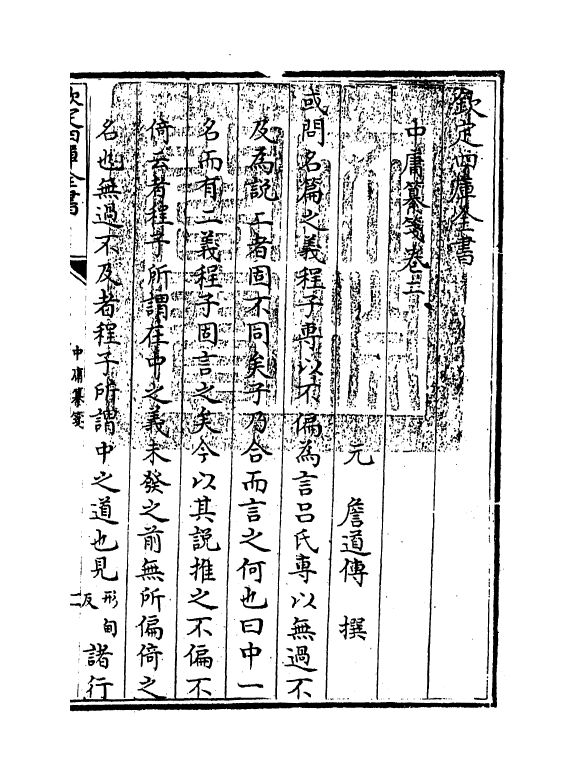 欽定四庫全書
中庸纂箋卷二
元 詹道傳 撰
或問名篇之義程子専以不偏為言呂氏専以無過不
及為說二者固不同矣子乃合而言之何也曰中一
名而有二義程子固言之矣今以其說推之不偏不
倚云者程子所謂在中之義未發之前無所偏倚之
名也無過不及者程子所謂中之道也見形甸反諸行
欽定四庫全書
中庸纂箋